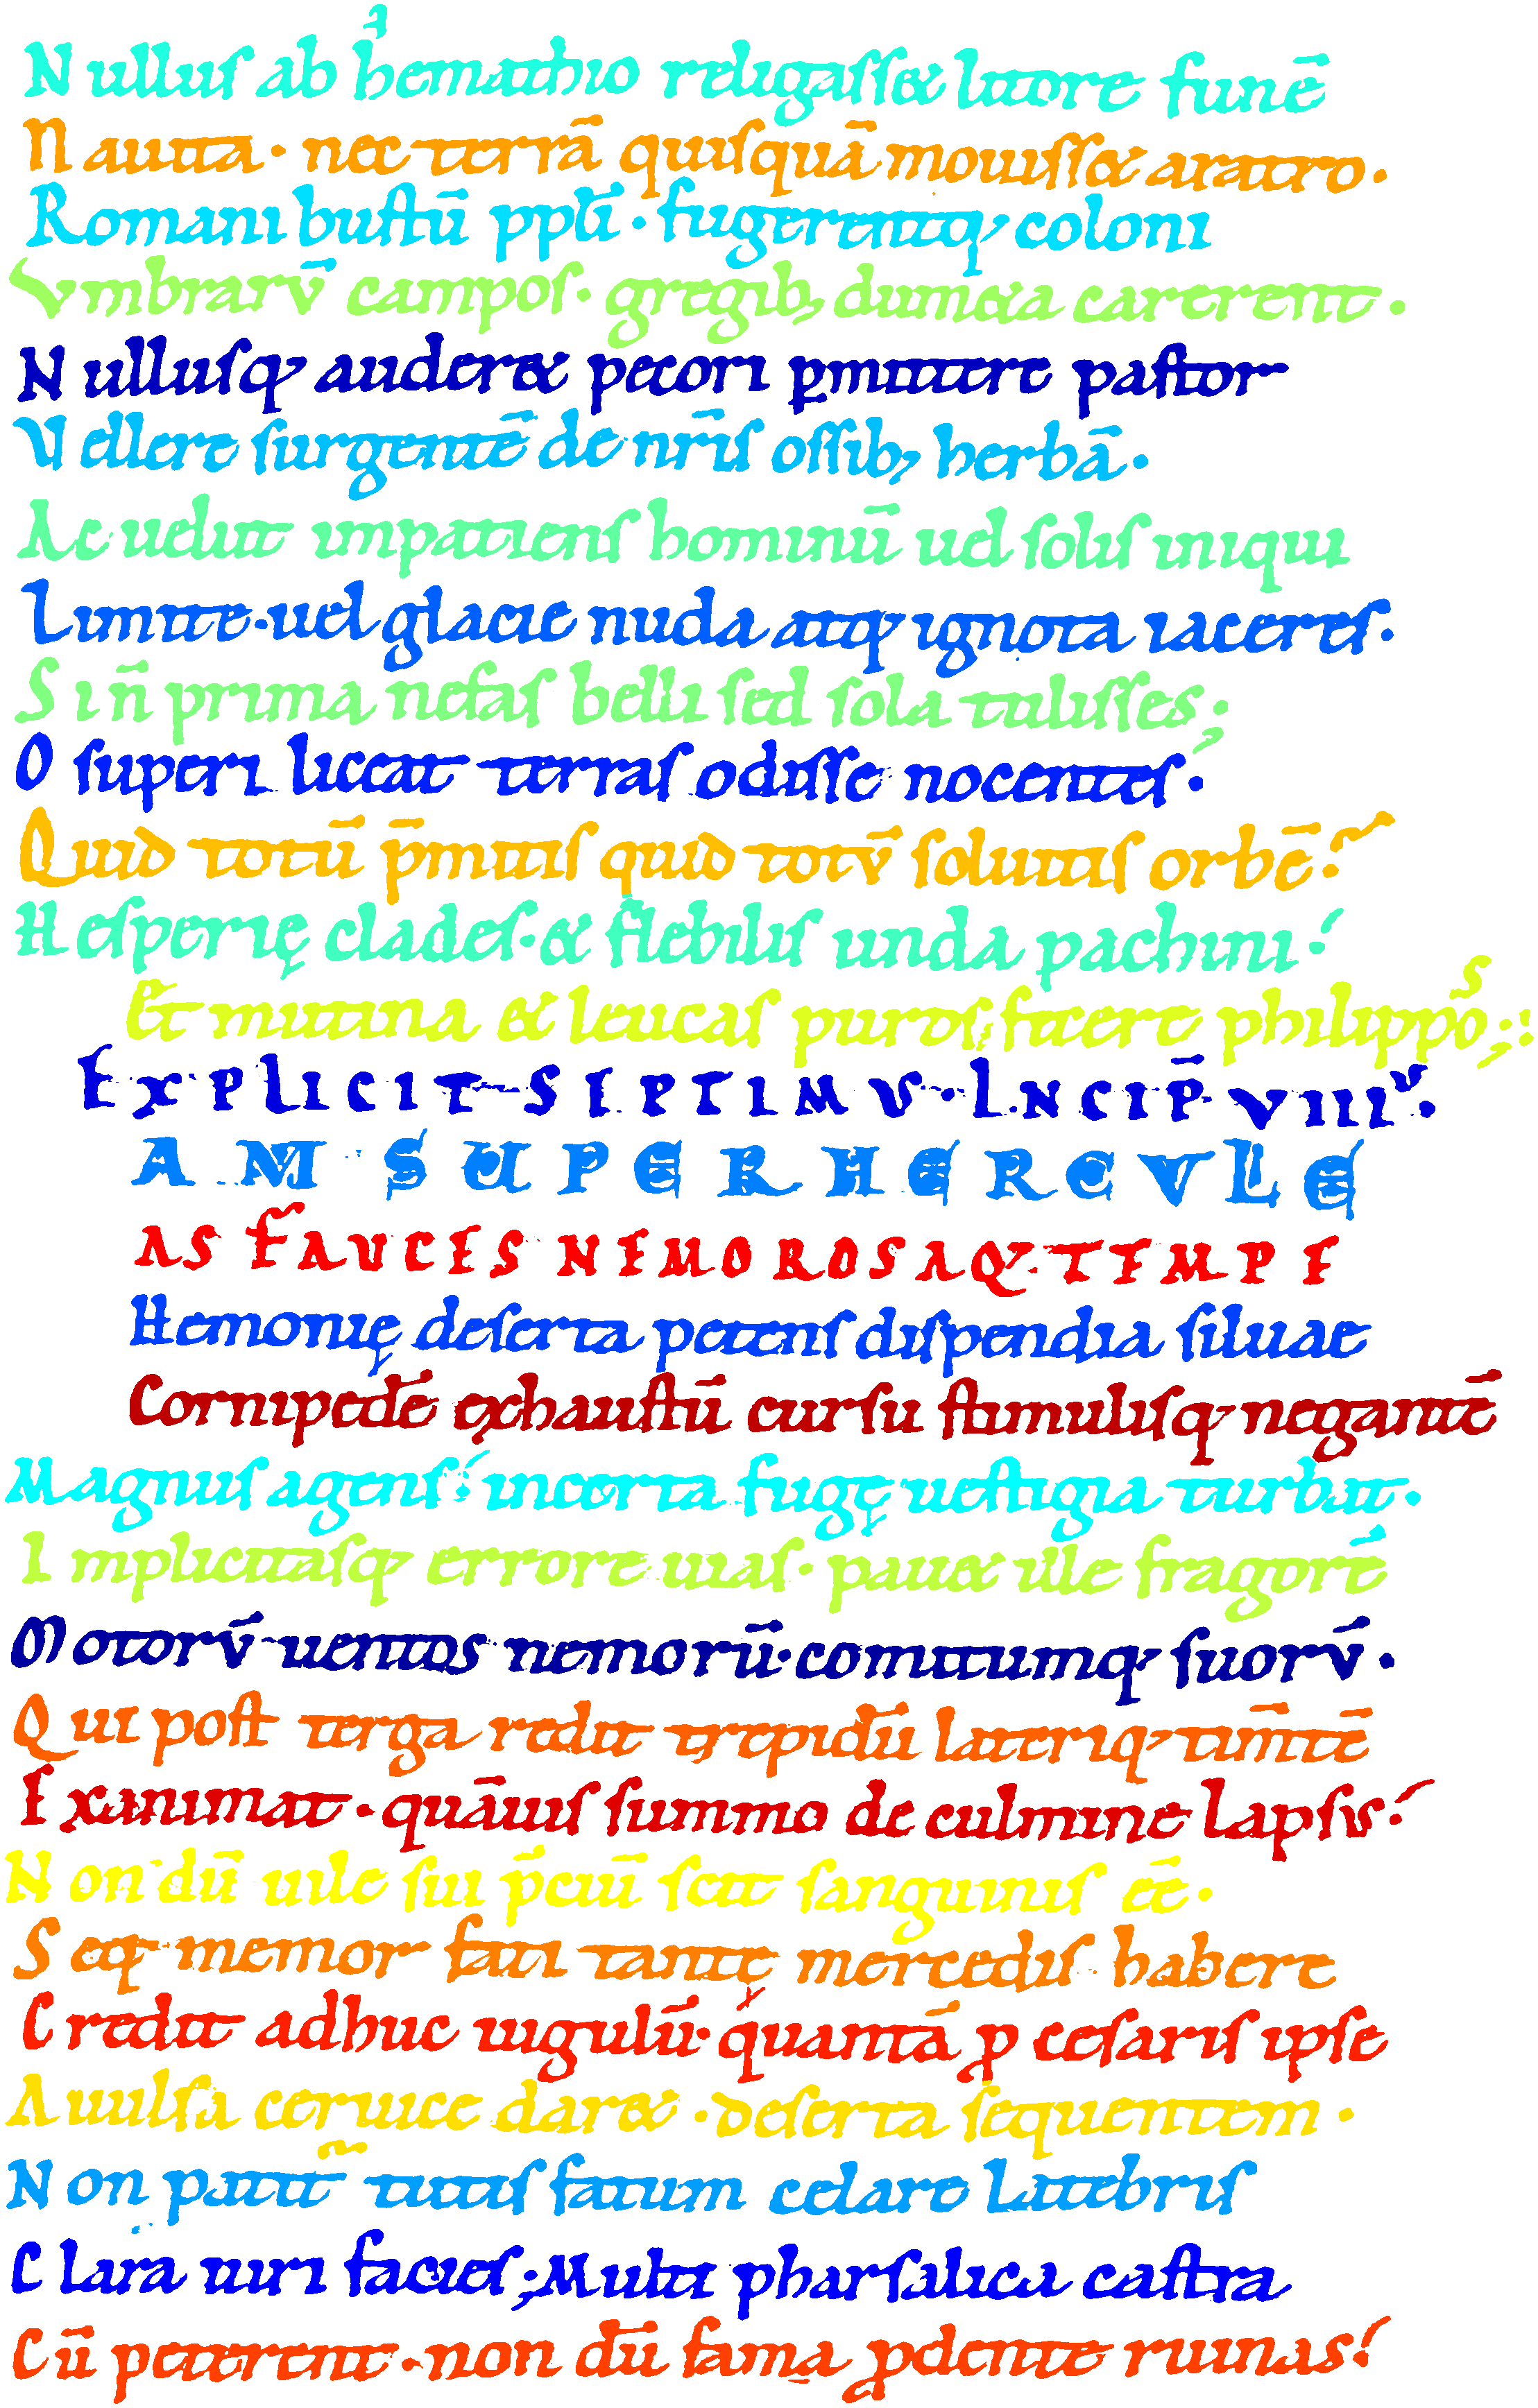 Nulluſ ab hemathio religaſſ& litore funē
Nauita · nec terrā quiſquā mouiſſ& aratro.
Romani buſtū ppli̅ · fugerentq; coloni
Vmbrarv̄ campoſ · gregib; dum&a carerent ·
Nulluſq; auder& pecori ꝑmittere paſtor
Vellere ſurgentē de nr̄iſ oſſib; herbā ·
Ac uelut impatienſ hominū uel ſoliſ iniqui
Limite · uel glacie nuda atq; ignota iacereſ ·
Si n̄ prima nefaſ belli ſed ſola tuliſſes;
O ſuperi liceat terraſ odiſſe nocenteſ ·
Quid totū p̄mitiſ quid totv̄ ſoluitiſ orbē?
Heſperię cladeſ · & flebiliſ unda pachini?
Et mutina & leucaſ puroſ fecere philippos;:
EXPLICIT SEPTIMVS · INCIP̄ VIIIv ·
AM SUPER HERCVLE
AS FAUCES NEMOROSAQ; TEMPE
Hemonię deſerta petenſ diſpendia ſiluae
Cornipedē exhauſtū curſu ſtimuliſq; negantē
Magnuſ agenſ? incerta fugę ueſtigia turbat ·
Implicitaſq; errore uiaſ · pau& ille fragorē
Motorv̄ uentos nemorū · comitumq; ſuorv̄ ·
Qui poſt terga redit trepidū lateriq; tim̄tē
Exanimat · quāuiſ ſummo de culmine lapſvs?
Non dū uile ſui p̄ciū ſcit ſanguiniſ eē ·
Seq; memor fati tantę mercediſ habere
Credit adhuc iugulū · quantā ꝓ ceſariſ ipſe
Auulſa ceruice dar& · deſerta ſequentem ·
Non patit̃ tutiſ fatum celare latebriſ
Clara uiri facieſ; Multi pharſalica caſtra
Cū peterent · non dū fama ꝓdente ruinas?